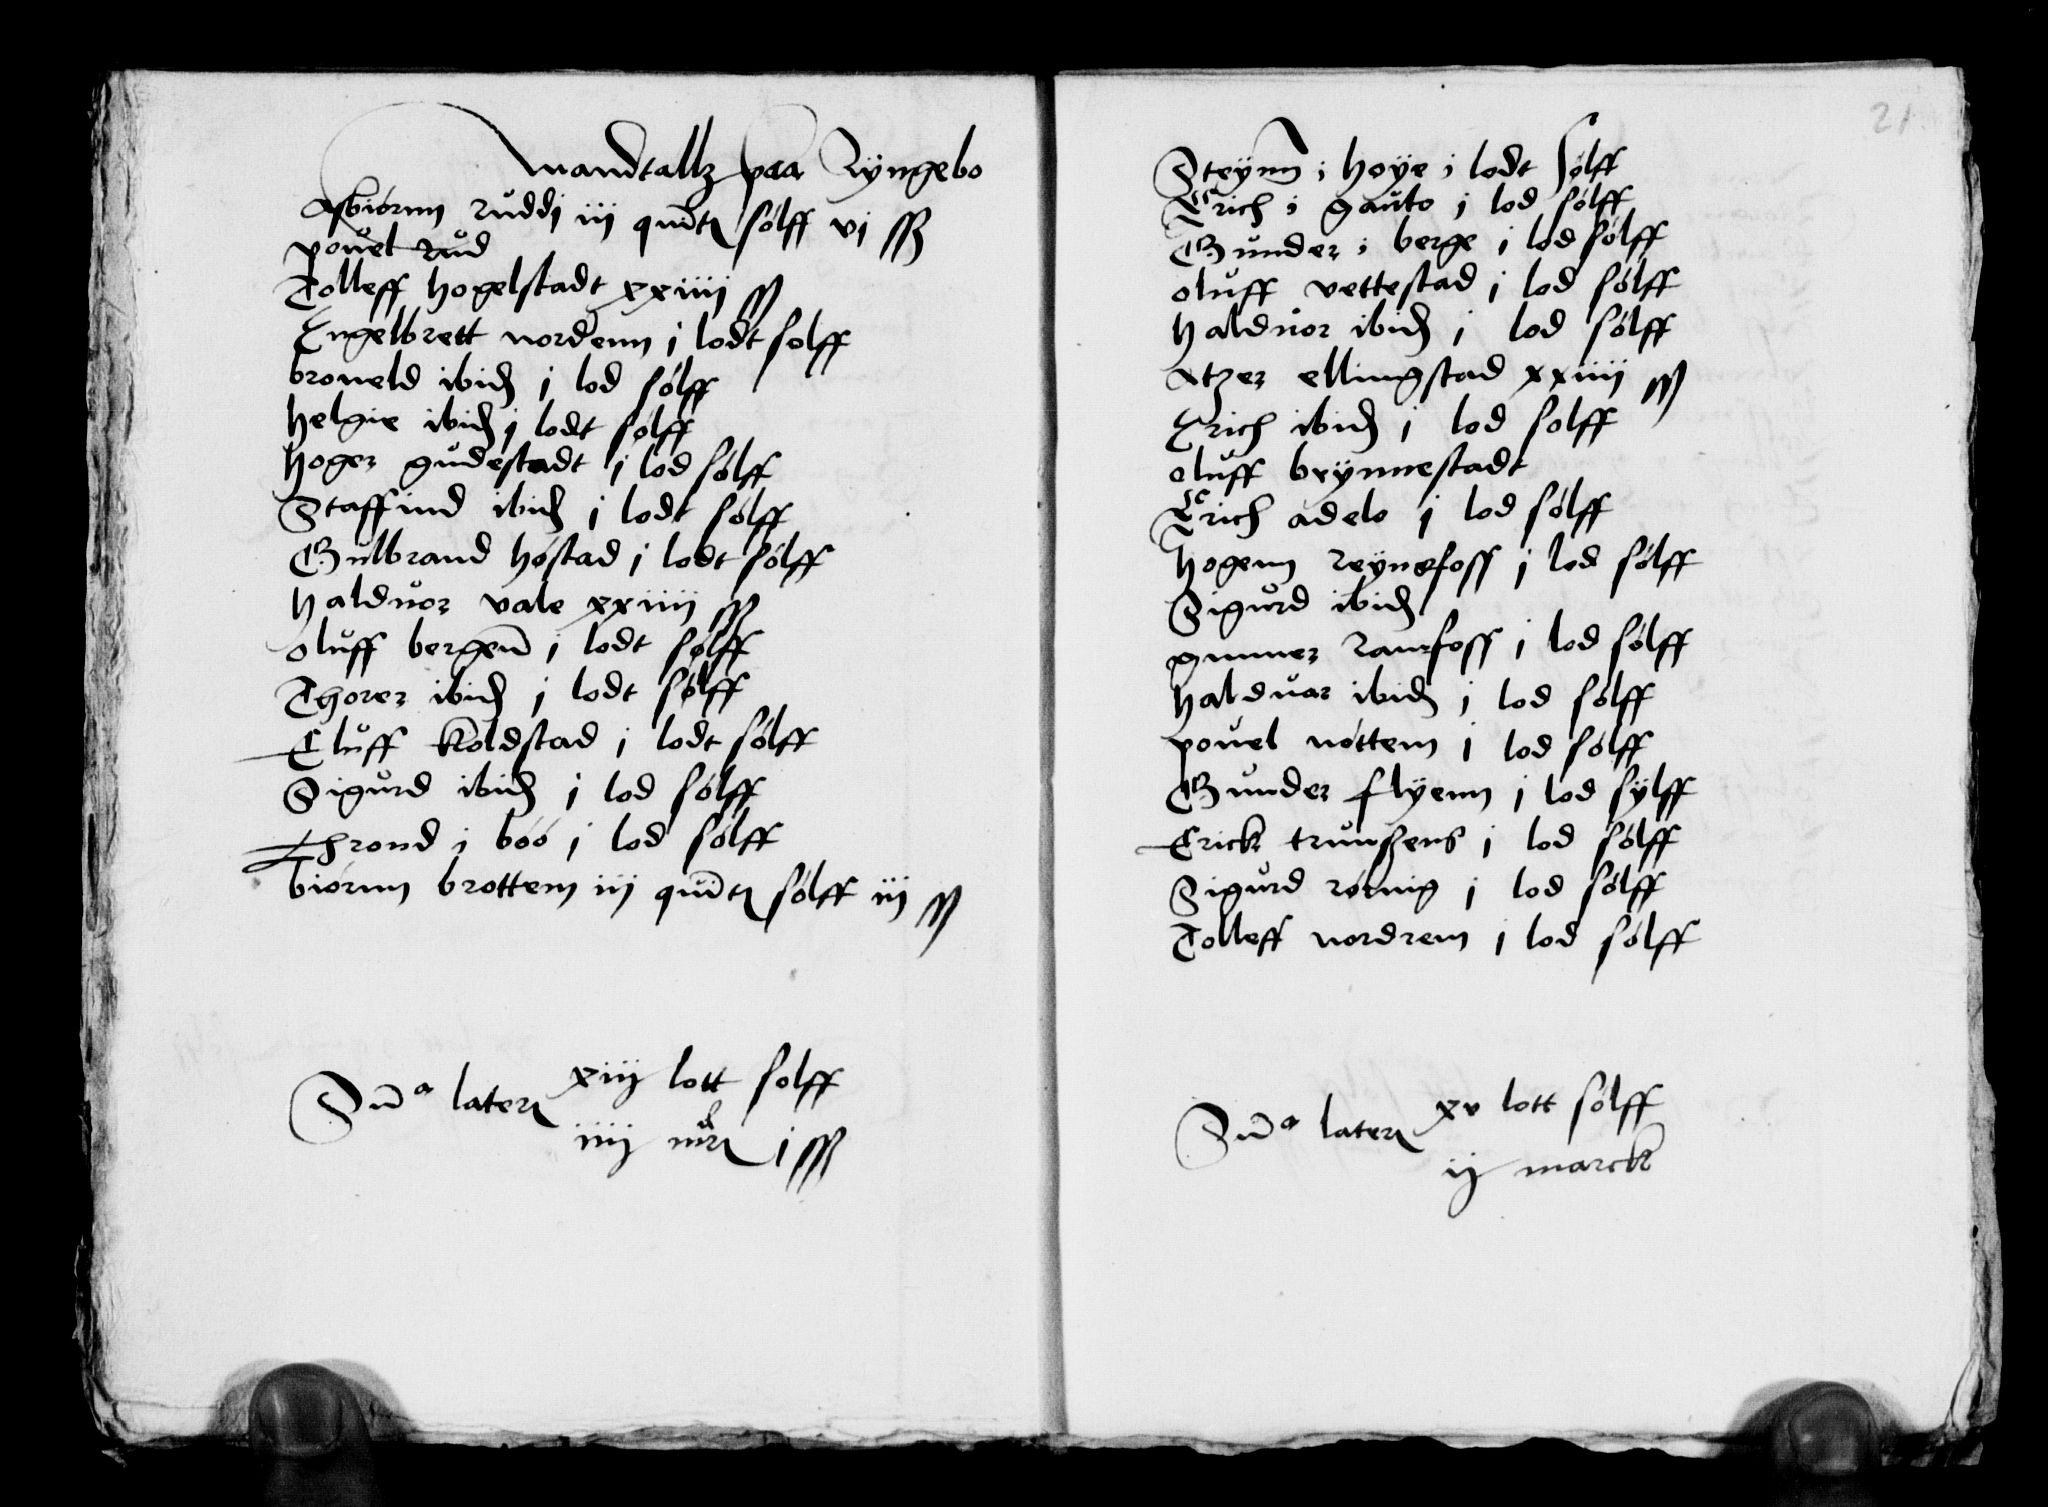 mandtallz paa Ryngebo
Asbiórnn ruddj iij quintj sólff vj ß
povel rud
Tolleff hogelstadt xxiiij ß
Engelbrett nordenn j lodt solff
broneld ibid j lod sólff
helgie ibid j lodt sólff
hoger gudestadt j lod sólff
Staffind ibid j lodt sólff
Gulbrand hóstad j lodt sólff
haldvor vale xxiiij ß
oluff bergenn j lodt sólff
Thorer ibid j lodt sólff
Oluff koldstad j lodt sólff
Sigurd ibid j lod sólff
Thrond i bóó j lod sólff
biórnn brottem iij quintj sólff iij ß
Suma laterj xiij lott solff
iiij mrj j ß
21
Steynn i hoye j lodt sólff
Erich i gauto j lod sólff
Gunder i berge j lod sólff
oluff vettestad j lod sólff
haldvor ibid j lod sólff
Atzer ellingstad xxiiij ß
Erich ibid j lod solff
oluff brynnestadt
Erich adelo j lod sólff
hogenn reynefoss j lod sólff
Sigurd ibid
gunner ranefoss j lod sólff
haldvar ibid j lod sólff
povel nóttem j lod sólff
Gunder flyenn j lod sylff
Erick trunszens j lod sólff
Sigurd rónnig j lod sólff
Tolleff nordrem j lod sólff
Suma laterj xv lott sólff
ij marck